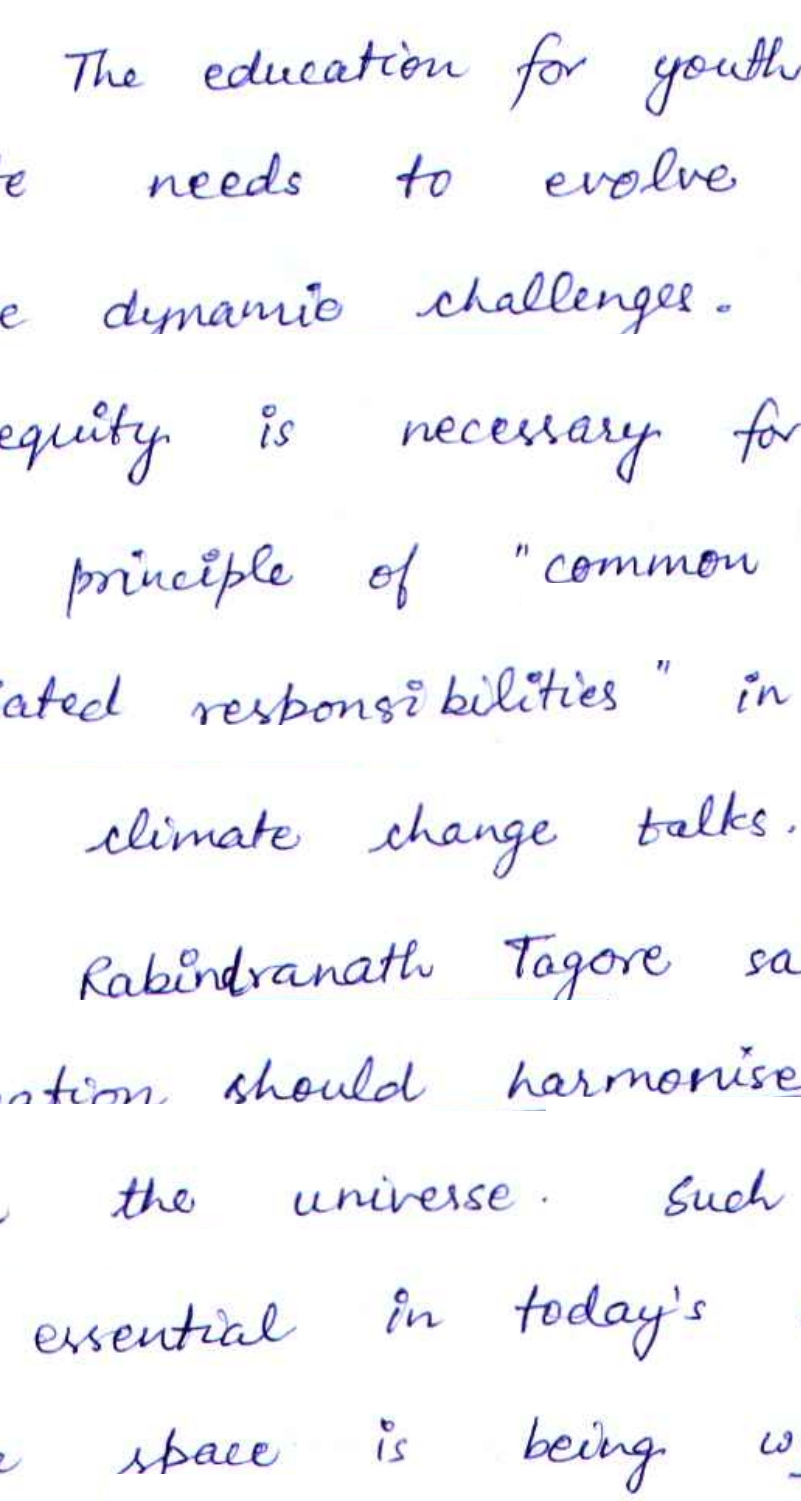 The education for youth
needs to evolve
dynamic challenges.
equity is necessary for
principle of "common
iated responsibilities" in
climate change talks.
Rabindranath Tagore sa
ation should harmonise
the universe. Such
essential in today's
space is being